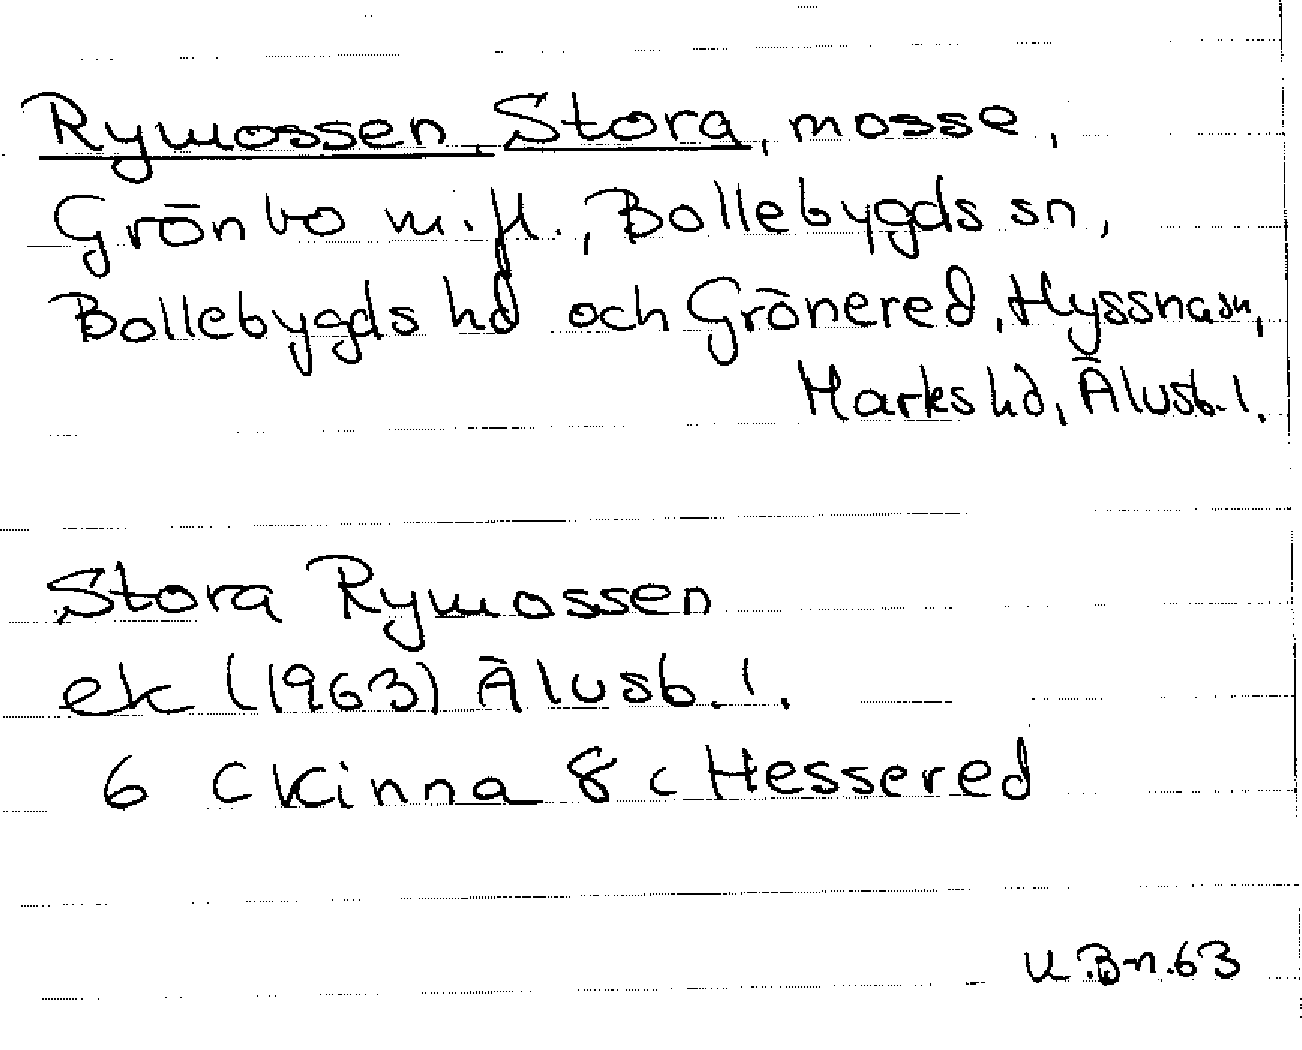 Rymossen, Stora, mosse,
Grönbo m.fl., Bollebygds sn,
Bollebygds hd och Grönered, Hyssna sn,
Marks hd, Älvsb. l.
Stora Rymossen
ek (1963) Älvsb. l.
6 C Kinna 8 c Hessered
U.B-n.63